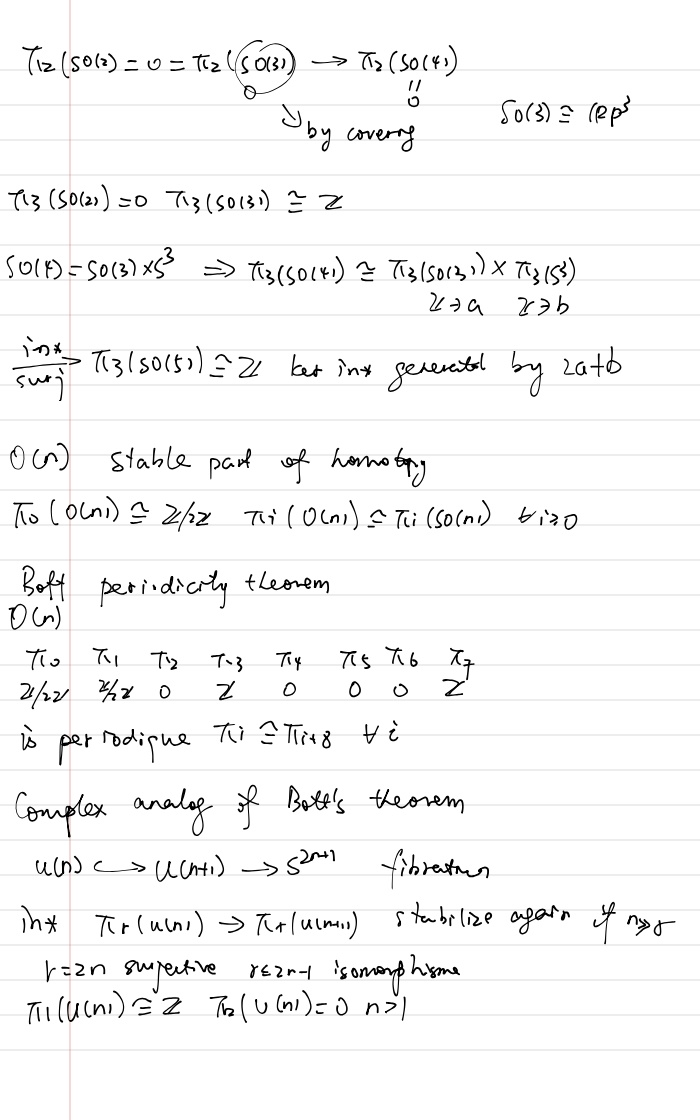 π₂(SO(2)) = 0 = π₂(SO(3)) → π₂(SO(4))
0 by covering = 0 SO(3) ≅ RP³
π₃(SO(2)) = 0 π₃(SO(3)) ≅ Z
SO(4) = SO(3) × S³ ⇒ π₃(SO(4)) ≅ π₃(SO(3)) × π₃(S³)
Z∋a Z∋b
inx/surj → π₃(SO(5)) ≅ Z ker inx generated by 2a+b
O(n) stable part of homotopy
π₀(O(n)) ≅ Z/2Z πi(O(n)) ≅ πi(SO(n)) ∀ i≥0
Bott periodicity theorem
O(n)
π₀ π₁ π₂ π₃ π₄ π₅ π₆ π₇
Z/2Z Z/2Z 0 Z 0 0 0 Z
is periodique πi ≅ πi+8 ∀ i
Complex analog of Bott's theorem
U(n) ↪ U(n+1) → S²ⁿ⁺¹ fibration
inx πr(U(n)) → πr(U(n+1)) stabilize again if n≫r
r=2n surjective r≤2n-1 isomorphisme
π₁(U(n)) ≅ Z π₂(U(n)) = 0 n>1